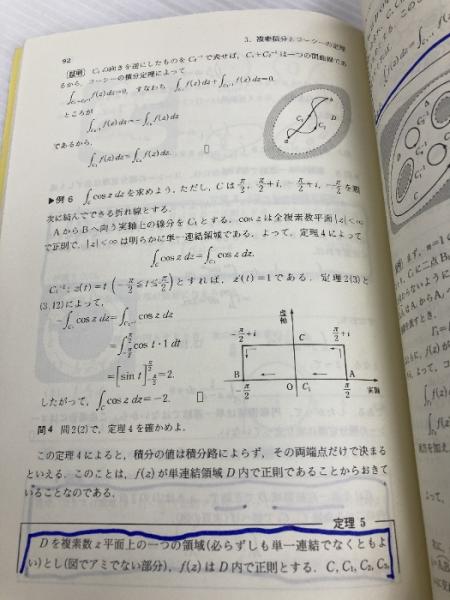 92
3. 複素積分とコーシーの定理
[証明] C₂の向きを逆にしたものを C₂⁻¹ で表せば, C₁+C₂⁻¹ は一つの閉曲線であ
るから, コーシーの積分定理によって
∫_{C₁+C₂⁻¹} f(z)dz=0, すなわち ∫_{C₁} f(z)dz+∫_{C₂⁻¹} f(z)dz=0.
ところが
∫_{C₂⁻¹} f(z)dz=-∫_{C₂} f(z)dz
であるから,
∫_{C₁} f(z)dz=∫_{C₂} f(z)dz. □
C₁ C₂ D
▶例6 ∫_C cos z dz を求めよう. ただし, C は π/2, π/2+i, -π/2+i, -π/2 を順
次に結んでできる折れ線とする.
AからBへ向う実軸上の線分を C₁ とする. cos z は全複素数平面 |z|<∞
で正則で, |z|<∞ は明らかに単一連結領域である. よって, 定理4によって
∫_C cos z dz=∫_{C₁} cos z dz.
C₁⁻¹: z(t)=t (-π/2≦t≦π/2) とすれば, z′(t)=1 である. 定理2(3)と
(3.12)によって,
-∫_{C₁} cos z dz=∫_{C₁⁻¹} cos z dz
=∫_{-π/2}^{π/2} cos t・1 dt
=[sin t]_{-π/2}^{π/2}=2.
したがって, ∫_C cos z dz=-2. □
虚軸
-π/2+i C π/2+i
B O C₁ A
-π/2 π/2 実軸
問4 問2(2)で, 定理4を確かめよ.
この定理4によると, 積分の値は積分路によらず, その両端点だけで決まる
といえる. このことは, f(z)が単連結領域D内で正則であることからおきて
いることなのである.
定理 5
Dを複素数z平面上の一つの領域(必らずしも単一連結でなくともよ
い)とし(図でアミでない部分), f(z)はD内で正則とする. C, C₁, C₂, C₃,